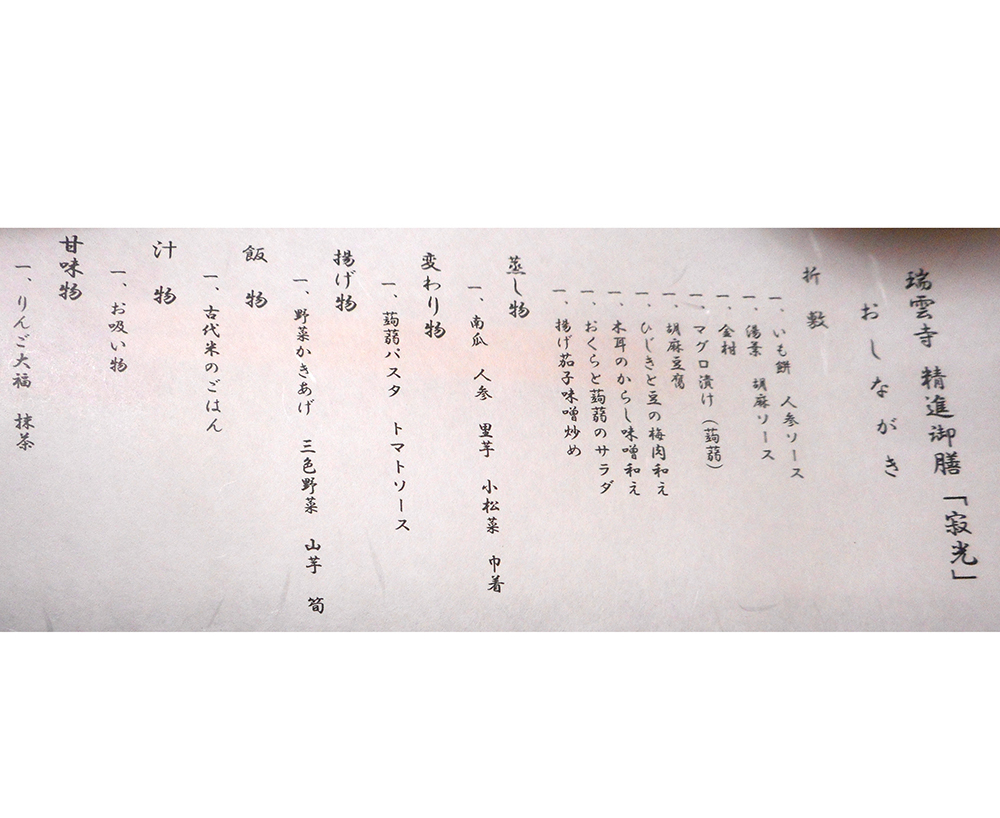 瑞雲寺 精進御膳 「寂光」
おしながき
折敷
一、いも餅 人参ソース
一、湯葉 胡麻ソース
一、金柑
一、マグロ漬け (蒟蒻)
一、胡麻豆腐
一、ひじきと豆の梅肉和え
一、木耳のからし味噌和え
一、おくらと蒟蒻のサラダ
一、揚げ茄子味噌炒め
蒸し物
一、南瓜 人参 里芋 小松菜 巾着
変わり物
一、蒟蒻パスタ トマトソース
揚げ物
一、野菜かきあげ 三色野菜 山芋 筍
飯物
一、古代米のごはん
汁物
一、お吸い物
甘味物
一、りんご大福 抹茶